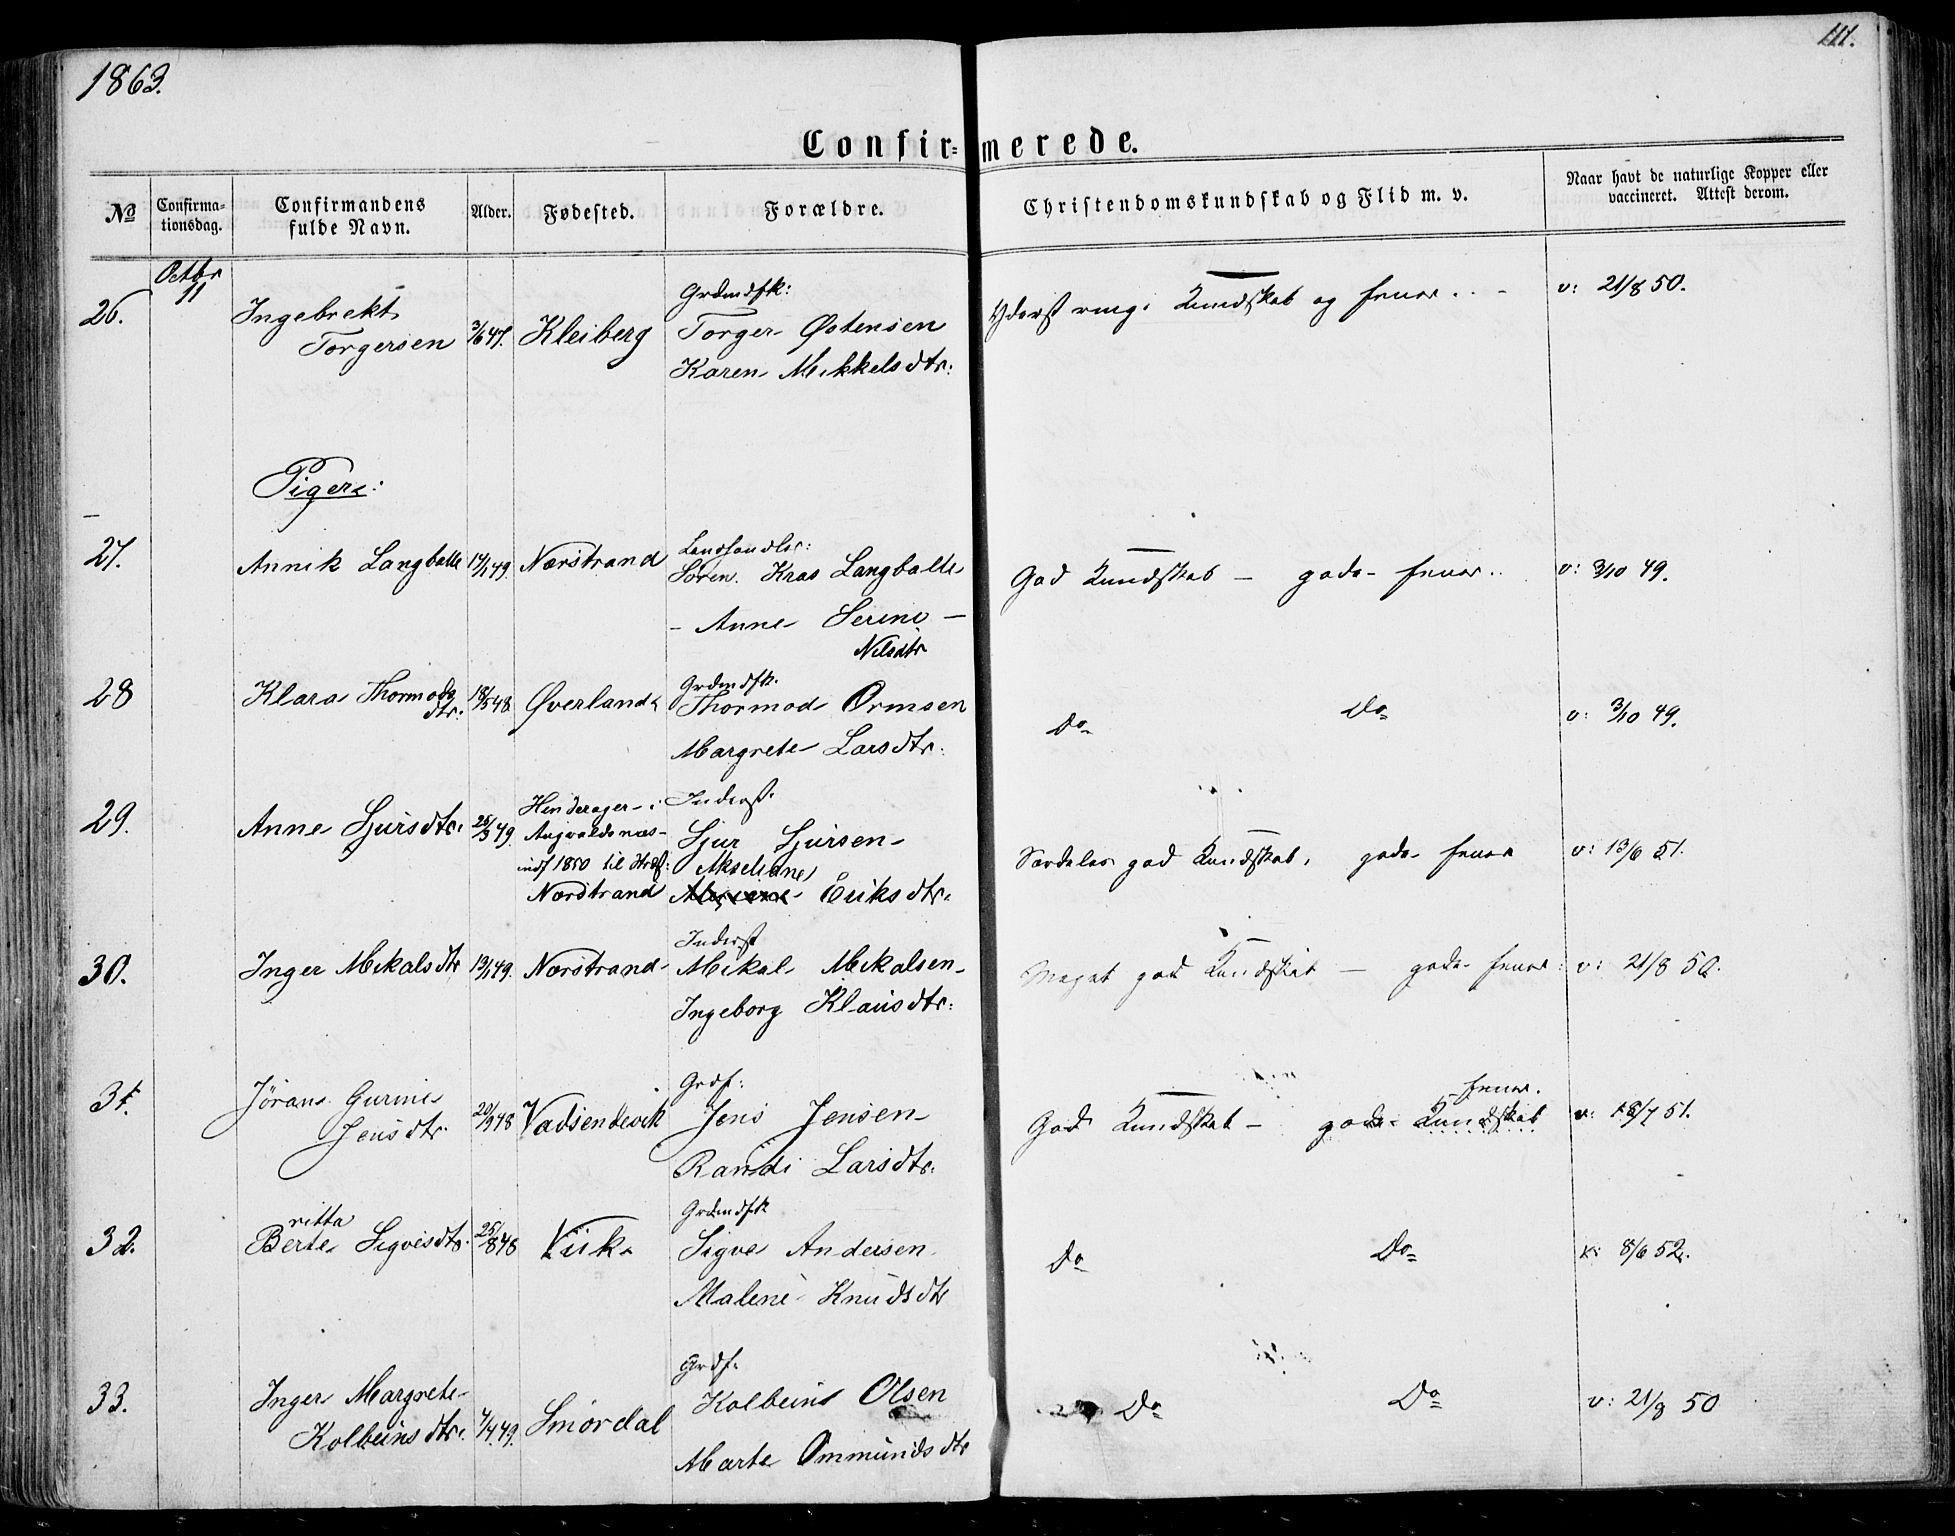 1863.
111.
Confirmerede.
No
Confirmationsdag.
Confirmandens fulde Navn.
Alder.
Fødested.
Forældre.
Christendomskundskab og Flid m. v.
Naar havt de naturlige Kopper eller vaccineret. Attest derom.
Octbr
11
26.
Ingebrekt
Torgersen
Kleiberg
Grdmdsk:
Torger Østensen
Karen Mikkelsdtr:
Yderst ring. Kundskab og
v: 21/8 50.
Piger:
27.
Annik Langballe
14/1 49.
Nærstrand
Landhandler:
Søren Kras Langballe
- Anne Serine -
Nilsdtr
God Kundskab - gode
v: 3/10 49.
28
Klara Thormodsdtr:
18/5 48
Øverland
Grdmdsk.
Thormod Ormsen
Margrete Larsdtr:
Do
Do
v: 3/10 49.
29.
Anne Sjursdtr.
25/3 49
Hinderager i
Augvaldsnæs
indf 1850 til
Nærstrand
Inderst
Sjur Sjursen
Akseliane
Eriksdtr.
Særdeles god Kundskab, gode
v: 13/6 51.
30.
Inger Mikalsdtr
13/1 49.
Nærstrand
Inderst
Mikal Mikalsen
Ingeborg Klausdtr:
Meget god Kundskab - gode
v: 21/8 50.
31.
Jøran Gurine
Jensdtr.
20/9 48
Vadsendevik
Grdf:
Jens Jensen
Randi Larsdtr.
God Kundskab - gode Kundskab
v: 18/7 51.
32.
ritta
Berte Sigvesdtr.
25/8 48
Viik
Grdmdsk
Sigve Andersen
Malene Knudsdtr
Do
Do
8/6 52.
33.
Inger Margrete
Kolbeinsdtr.
7/4 49.
Smørdal
Grdf.
Kolbein Olsen
Marte Ommundsdtr
Do
Do
v: 21/8 50